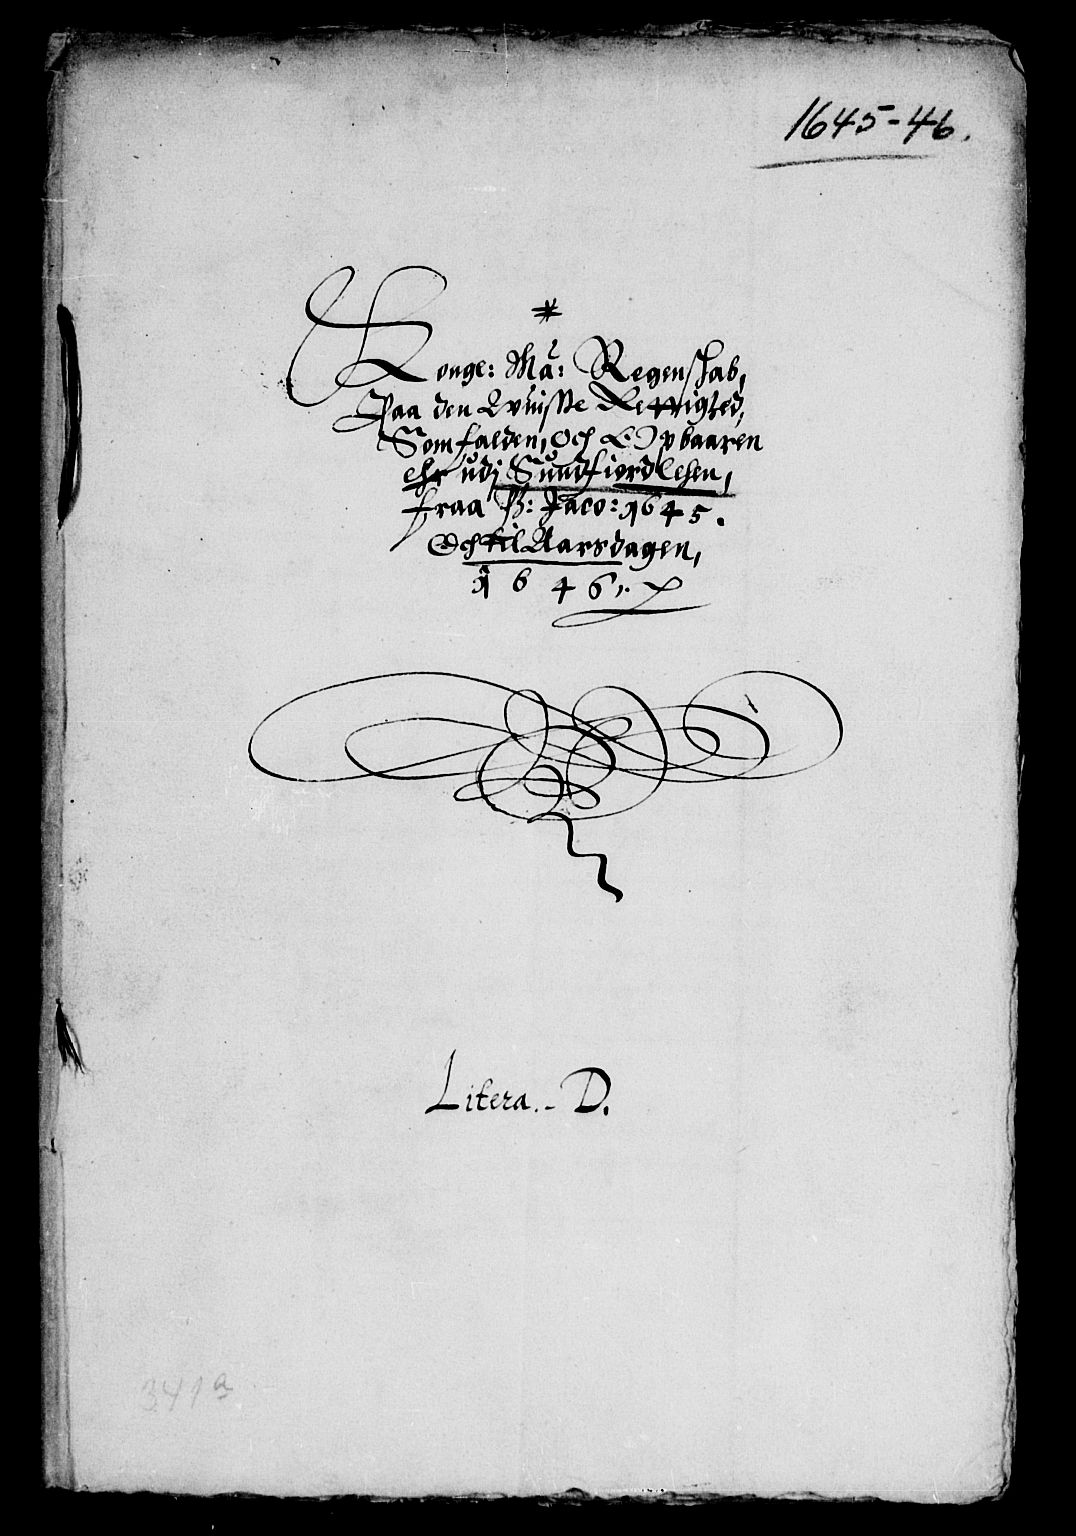 1645-46.
Konge: Ma: Regenskab,
Paa den Wuisse Rettighed,
Som falden, Och Opbaaren
ehr udj Sundfiordlehen,
fraa P: Jaco: 1645.
Och til Aarsdagen,
1646.
Litera.- D.
341